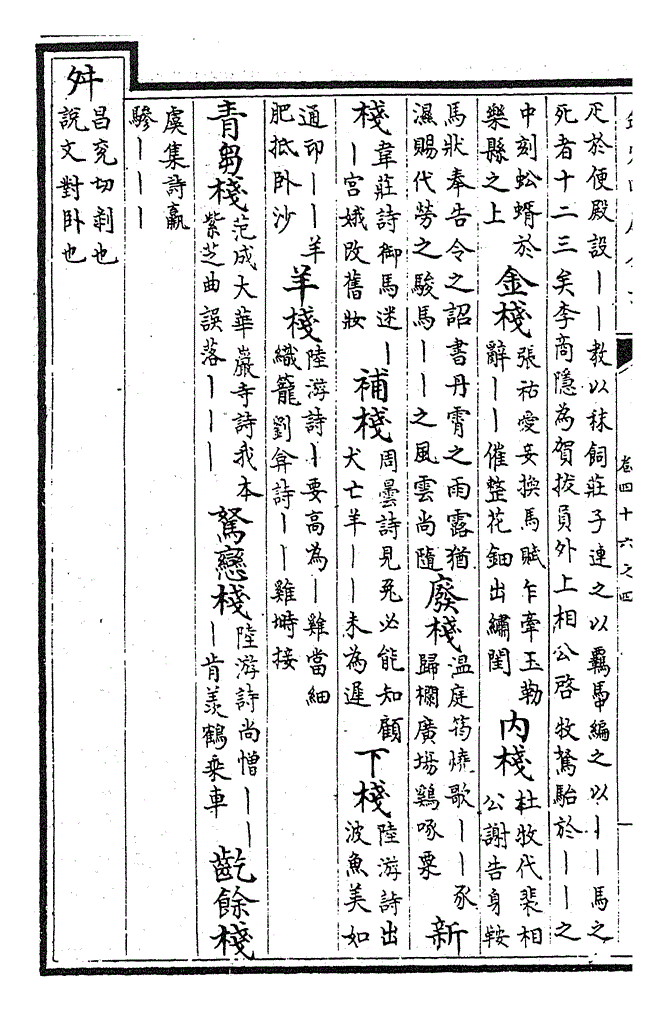 卷四十六之四
疋於便殿設丨丨教以秣飼莊子連之以羈馽編之以丨丨馬之
死者十二三矣李商隱為賀拔員外上相公啓牧駑駘於丨丨之
中刻蚣蝑於
樂縣之上
金棧
張祜愛妾換馬賦乍牽玉勒
辭丨丨催整花鈿出繡閨
内棧
杜牧代裴相
公謝告身鞍
馬狀奉告令之詔書丹霄之雨露猶
濕賜代勞之駿馬丨丨之風雲尚隨
廢棧
温庭筠燒歌丨丨豕
歸欄廣場鷄啄粟
新
棧
韋莊詩御馬迷丨
丨宫娥改舊妝
補棧
周曇詩見兎必能知顧
犬亡羊丨丨未為遲
下棧
陸游詩出
波魚美如
通印丨丨羊
肥抵卧沙
羊棧
陸游詩丨要高為丨雞當細
織籠劉弇詩丨丨雞塒接
青芻棧
范成大華嚴寺詩我本
紫芝曲誤落丨丨丨
駑戀棧
陸游詩尚憎丨丨
丨肯羡鶴乗車
齕餘棧
虞集詩羸
驂丨丨丨
舛
昌兖切剥也
說文對卧也